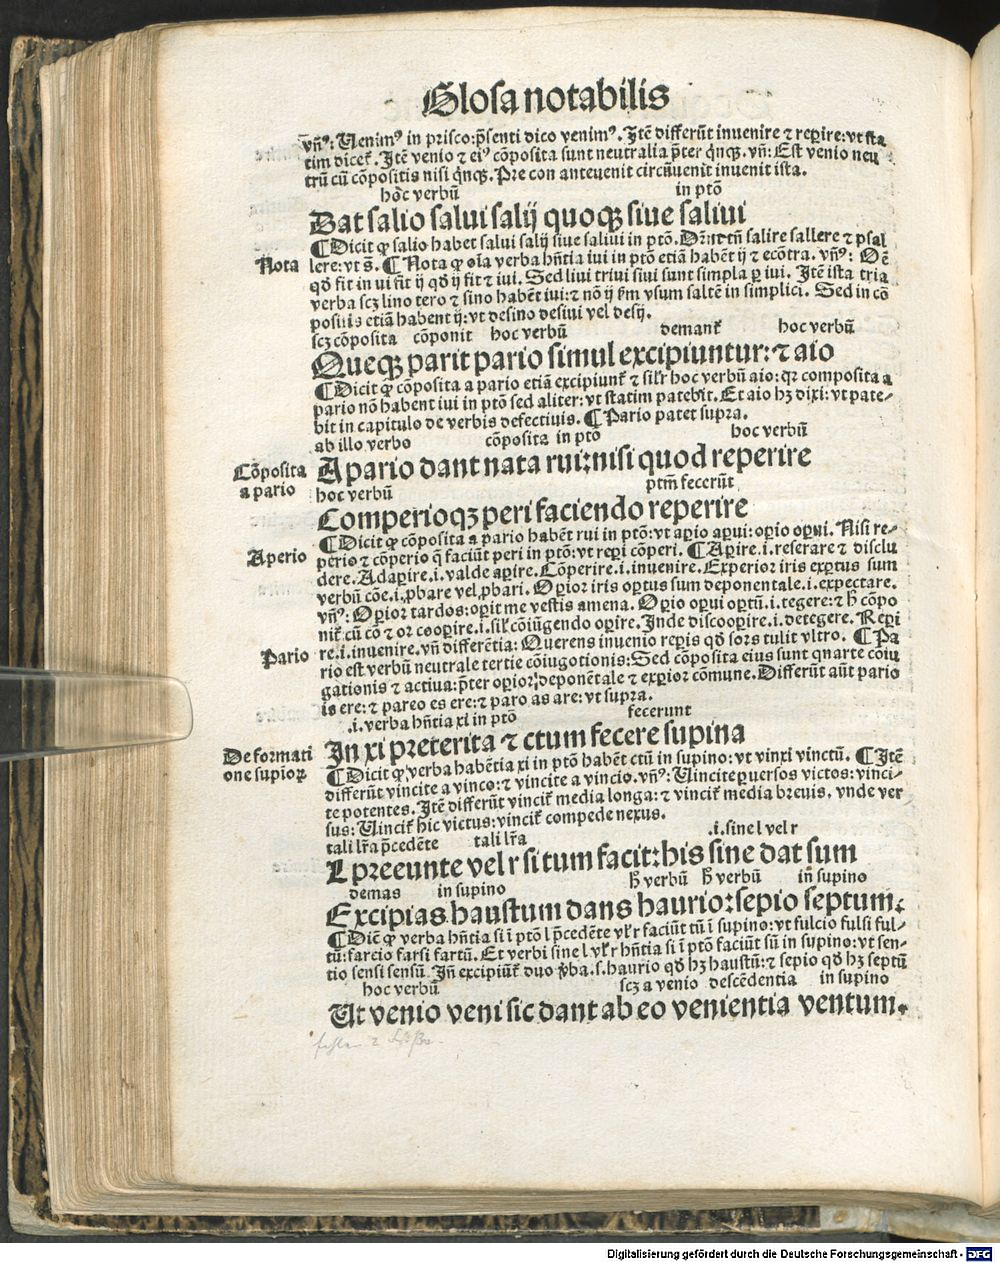 Glosa notabilis
vn̄ꝰ: Uenimꝰ in prisco: p̄senti dico venimꝰ. Itē differūt inuenire ⁊ reꝑire: vt sta
tim diceƭ. Itē venio ⁊ eiꝰ cōposita sunt neutralia p̄ter q̇nqꝫ. vn̄: Est venio neu
trū cū cōpositis nisi q̇nqꝫ. Pre con anteuenit circūuenit inuenit ista.
hoc verbū in ptō
Dat salio salui salij quoqꝫ siue saliui
¶ Dicit ꝙ salio habet salui salij siue saliui in ptō. salire sallere ⁊ psal
Nota
lere: vt s̄. ¶ Nota ꝙ oīa verba hn̄tia iui in ptō etiā habēt ij ⁊ ecōtra. vn̄ꝰ: Oē
qḋ fit in ui fit ij qḋ ij fit ⁊ iui. Sed liui triui siui sunt simpla ꝑ iui. Itē ista tria
verba scꝫ lino tero ⁊ sino habēt iui: ⁊ nō ij ẜm vsum saltē in simplici. Sed in cō
positis etiā habent ij: vt desino desiui vel desij.
scꝫ cōposita cōponit hoc verbū demanƭ hoc verbū
Queqꝫ parit pario simul excipiuntur: ⁊ aio
¶ Dicit ꝙ cōposita a pario etiā excipiunƭ ⁊ sil'r hoc verbū aio: qr composita a
pario nō habent iui in ptō sed aliter: vt statim patebit. Et aio hꝫ dixi: vt pate-
bit in capitulo de verbis defectiuis. ¶ Pario patet supra.
ab illo verbo cōposita in ptō hoc verbū
Cōposita
a pario
A pario dant nata rui: nisi quod reperire
hoc verbū ptm̄ fecerūt
Comperioqꝫ peri faciendo reperire
¶ Dicit ꝙ cōposita a pario habēt rui in ptō: vt aꝑio aꝑui: oꝑio oꝑui. Nisi re-
Aperio
perio ⁊ cōperio q̄ faciūt peri in ptō: vt reꝑi cōperi. ¶ Aꝑire .i. reserare ⁊ disclu
dere. Adaꝑire .i. valde aꝑire. Cōperire .i. inuenire. Experior iris exꝑtus sum
verbū cōe .i. ꝓbare vel ꝓbari. Oꝑior iris oꝑtus sum deponentale .i. expectare.
vn̄ꝰ: Oꝑior tardos: oꝑit me vestis amena. Oꝑio oꝑui oꝑtū .i. tegere: ⁊ h̄ cōpo
niƭ cū cō ⁊ or cooꝑire .i. sil' cōiūgendo oꝑire. Inde discooꝑire .i. detegere. Reꝑi
Pario
re .i. inuenire. vn̄ differētia: Querens inuenio reꝑis qḋ sors tulit vltro. ¶ Pa
rio est verbū neutrale tertie cōiugotionis: Sed cōposita eius sunt quarte cōiu
gationis ⁊ actiua: p̄ter oꝑior: deponētale ⁊ exꝑior cōmune. Differūt aūt pario
is ere: ⁊ pareo es ere: ⁊ paro as are: vt supra.
.i. verba hn̄tia xi in ptō fecerunt
De formati
one supioꝝ
In xi preterita ⁊ ctum fecere supina
¶ Dicit ꝙ verba habētia xi in ptō habēt ctū in supino: vt vinxi vinctū. ¶ Itē
differūt vincite a vinco: ⁊ vincite a vincio. vn̄ꝰ: Uincite ꝑuersos victos: vinci-
te potentes. Itē differūt vinciƭ media longa: ⁊ vinciƭ media breuis. vnde ver
sus: Uinciƭ hic victus: vinciƭ compede nexus.
tali lr̄a p̄cedēte tali lr̄a .i. sine l vel r
L preeunte vel r si tum facit: his sine dat sum
demas in supino h̄ verbū h̄ verbū in supino
Excipias haustum dans haurio: sepio septum.
¶ Dic̄ ꝙ verba hn̄tia si ī ptō l p̄cedēte vl' r faciūt tū ī supino: vt fulcio fulsi ful-
tū: farcio farsi fartū. Et verbi sine l vl' r hn̄tia si ī ptō faciūt sū in supino: vt sen-
tio sensi sensū. In̄ excipiūƭ duo v̄ba .s. haurio qḋ hꝫ haustū: ⁊ sepio qḋ hꝫ septū
hoc verbū scꝫ a venio descēdentia in supino
Ut venio veni sic dant ab eo venientia ventum.
Digitalisierung gefördert durch die Deutsche Forschungsgemeinschaft - DFG